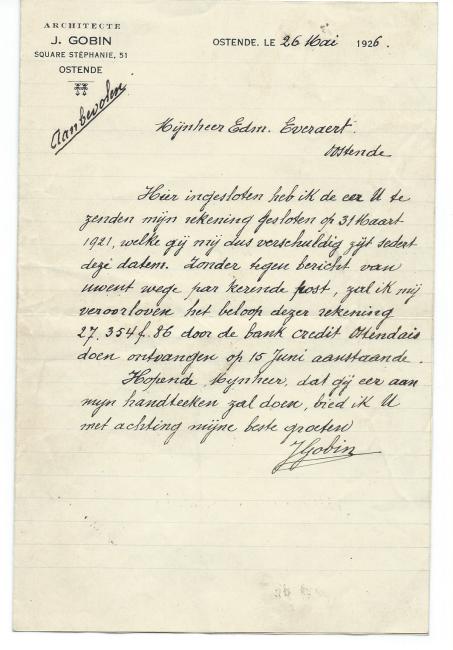 ARCHITECTE
J. GOBIN
SQUARE STÉPHANIE, 51
OSTENDE
Aanbevolen
OSTENDE, LE 26 Mai 1926.
Mijnheer Edm. Everaert.
Oostende
Hier ingesloten heb ik de eer U te
zenden mijn rekening gesloten op 31 Maart
1921, welke gij mij dus verschuldig zijt sedert
dezé datem. Zonder tegen bericht van
uwent wege par keerende post, zal ik mij
veroorloven het beloop dezer rekening
27.354 f. 86 door de bank credit Ostendais
doen ontvangen op 15 Juni aanstaande.
Hopende, Mijnheer, dat gij eer aan
mijn handteeken zal doen, bied ik U
met achting mijne beste groeten
JGobin